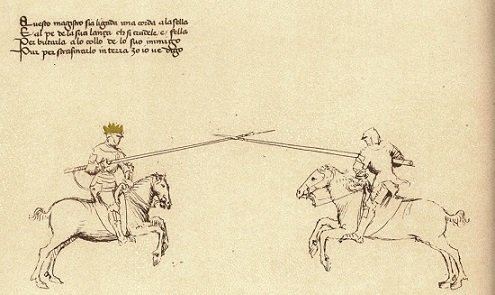 Questo magistro sia ligada una corda ala sella
E al pe de la sua lança ch'si crudele e fella
Per butarla a lo collo de lo suo inimigo
Pur per strasinarlo in terra zo io ve digo